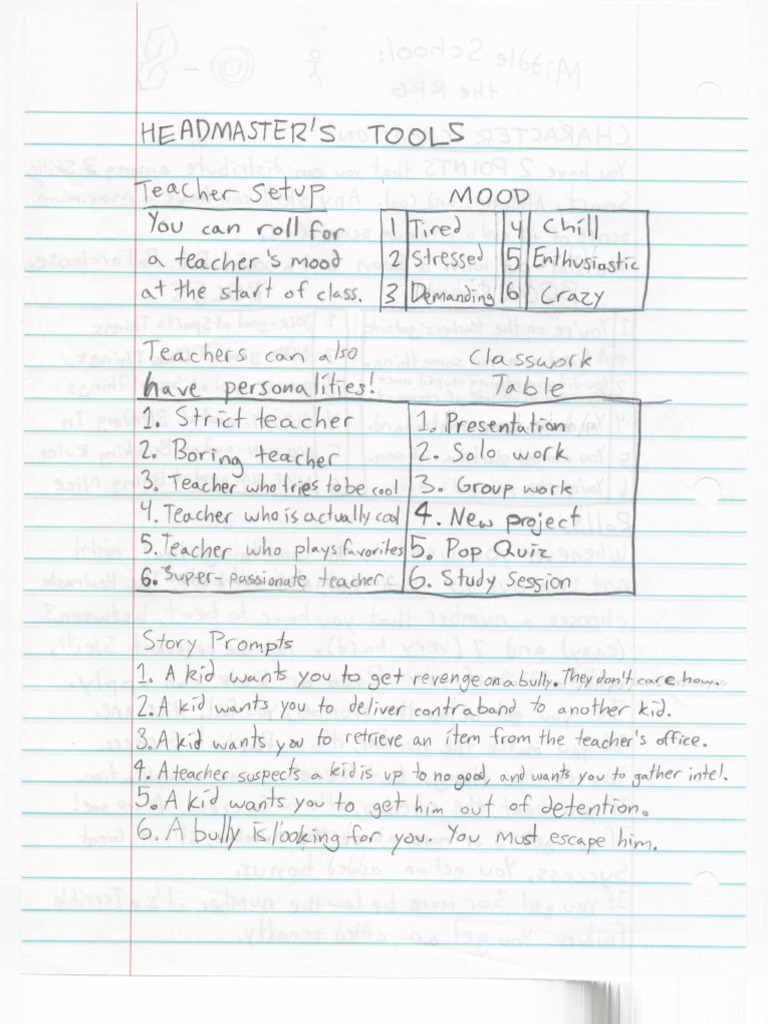 HEADMASTER'S TOOLS
Teacher Setup
You can roll for
a teacher's mood
at the start of class.
MOOD
1 Tired 4 Chill
2 Stressed 5 Enthusiastic
3 Demanding 6 Crazy
Teachers can also
have personalities!
1. Strict teacher
2. Boring teacher
3. Teacher who tries to be cool
4. Teacher who is actually cool
5. Teacher who plays favorites
6. Super-passionate teacher
Classwork
Table
1. Presentation
2. Solo work
3. Group work
4. New project
5. Pop Quiz
6. Study Session
Story Prompts
1. A kid wants you to get revenge on a bully. They don't care how.
2. A kid wants you to deliver contraband to another kid.
3. A kid wants you to retrieve an item from the teacher's office.
4. A teacher suspects a kid is up to no good, and wants you to gather intel.
5. A kid wants you to get him out of detention.
6. A bully is looking for you. You must escape him.